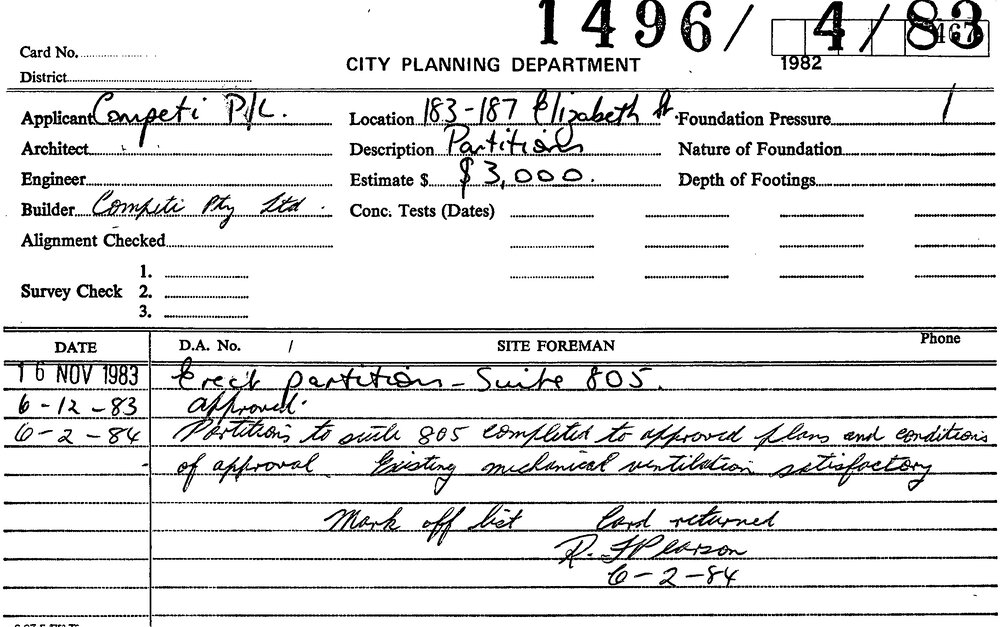 1496/ 4/83
467
Card No.
1982
CITY PLANNING DEPARTMENT
District
Applicant Competi P/L. Location 183-187 Elizabeth St. Foundation Pressure /
Architect Description Partitions Nature of Foundation
Engineer Estimate $ $3,000. Depth of Footings
Builder Competi Pty Ltd. Conc. Tests (Dates)
Alignment Checked
1.
Survey Check 2.
3.
DATE D.A. No. / SITE FOREMAN Phone
16 NOV 1983 Erect partitions - Suite 805.
6-12-83 approved.
6-2-84 Partitions to suite 805 completed to approved plans and conditions
of approval Existing mechanical ventilation satisfactory
Mark off list Card returned
R. F Pearson
6-2-84